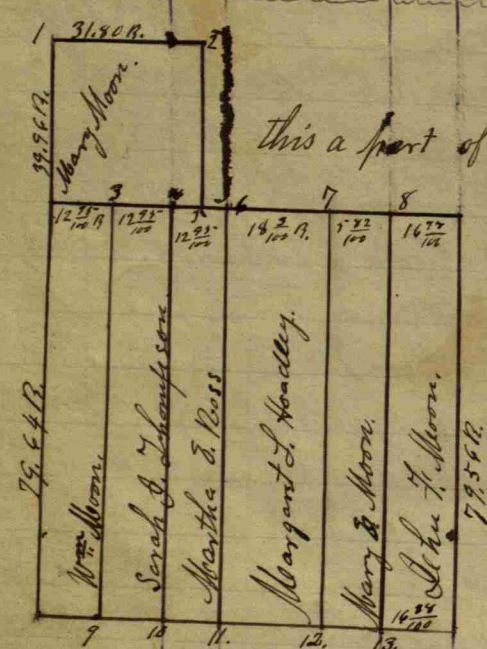 1 31.80 R. 2
39.96 R.
Mary Moon.
this a part of
3 4 5 6 7 8
12 95/100 R 12 95/100 12 95/100 18 3/100 R. 5 82/100 16 78/100
79.64 R.
Wm Moon.
Sarah J. Thompson
Martha E. Ross
Margaret L. Hoadley.
Mary E. Moon.
John F. Moon.
79.56 R.
16 88/100
9 10 11. 12. 13.